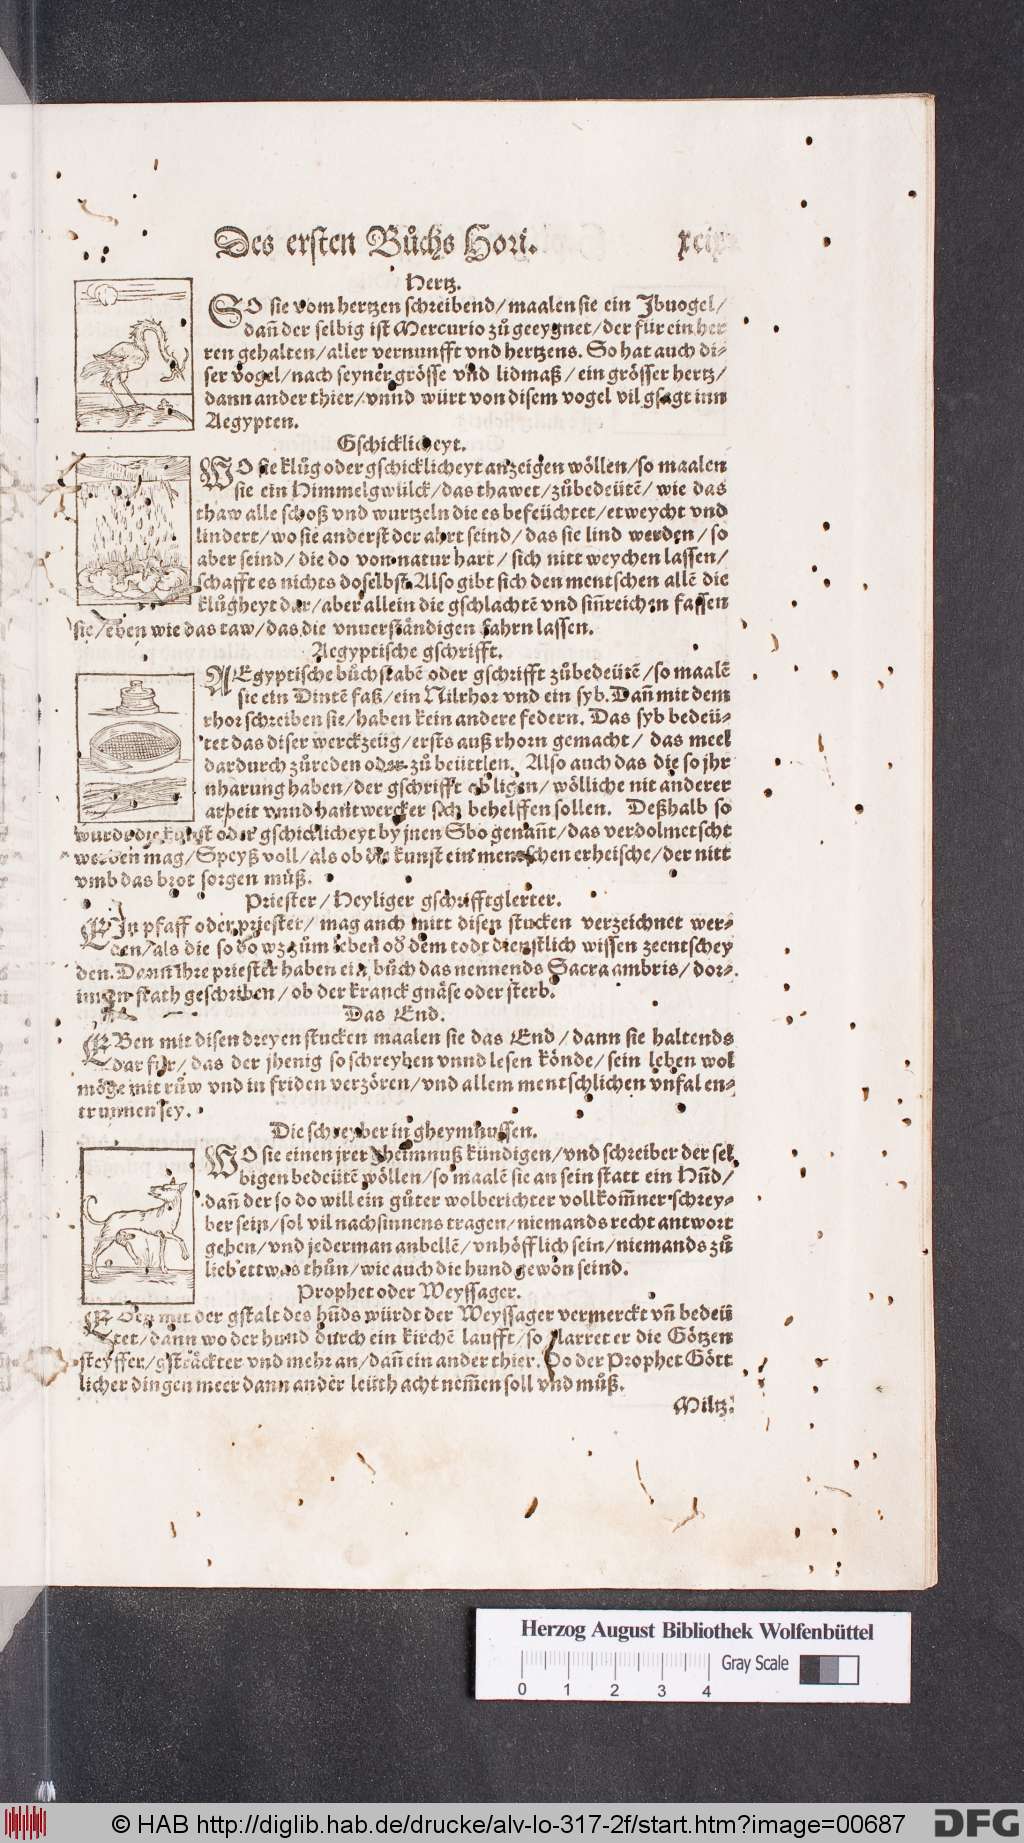 Des ersten Bůchs Hori. xcix
Hertz.
SO sie vom hertzen schreibend/ maalen sie ein Jbuogel/
dañ der selbig ist Mercurio zů geeygnet/ der für ein her
ren gehalten/ aller vernunfft vnd hertzens. So hat auch di-
ser vogel/ nach seyner grösse vnd lidmaß/ ein grösser hertz/
dann ander thier/ vnnd würt von disem vogel vil gsagt inn
Aegypten.
Gschicklicheyt.
WO sie klůg oder gschicklicheyt anzeigen wöllen/ so maalen
sie ein Himmelgwülck/ das thawet/ zůbedeütẽ/ wie das
thaw alle schoß vnd wurtzeln die es befeüchtet/ etweycht vnd
lindert/ wo sie anderst der ahrt seind/ das sie lind werden/ so
aber seind/ die do von natur hart/ sich nitt weychen lassen/
schafft es nichts doselbst. Also gibt sich den mentschen allẽ die
klůgheyt dar/ aber allein die gschlachtẽ vnd siñreichen fassen
sie/ eben wie das taw/ das die vnuerständigen fahrn lassen.
Aegyptische gschrifft.
AEgyptische bůchstabẽ oder gschrifft zůbedeütẽ/ so maalẽ
sie ein Dintẽ faß/ ein Nilrhor vnd ein syb. Dañ mit dem
rhor schreiben sie/ haben kein andere federn. Das syb bedeü-
tet das diser werckzeüg/ ersts auß rhorn gemacht/ das meel
dardurch zůreden oder zů beüttlen. Also auch das die so jhr
nharung haben/ der gschrifft obligen/ wölliche nit anderer
arbeit vnnd hantwercker sich behelffen sollen. Deßhalb so
würde die kunst oder gschicklicheyt by jnen Sbo genañt/ das verdolmetscht
werden mag/ Speyß voll/ als ob die kunst ein mentschen erheische/ der nitt
vmb das brot sorgen müß.
Priester/ Heyliger gschrifftglerter.
EJn pfaff oder priester/ mag auch mitt disen stucken verzeichnet wer-
den/ als die so do wz zům leben od dem todt dienstlich wissen zeentschey
den. Dann ihre priester haben ein bůch das nennends Sacra ambris/ dor-
innen stath geschriben/ ob der kranck gnäse oder sterb.
Das End.
EBen mit disen dreyen stucken maalen sie das End/ dann sie haltends
darfür/ das der jhenig so schreyben vnnd lesen könde/ sein leben wol
möge mit růw vnd in friden verzören/ vnd allem mentschlichen vnfal en-
trunnen sey.
Die schreyber in gheymnussen.
WO sie einen jrer gheimnuß kündigen/ vnd schreiber der sel
bigen bedeütẽ wöllen/ so maalẽ sie an sein statt ein Hũd/
dañ der so do will ein gůter wolberichter vollkom̃ner schrey-
ber sein/ sol vil nachsinnens tragen/ niemands recht antwort
geben/ vnd jederman anbellẽ/ vnhöfflich sein/ niemands zů
lieb ettwas thůn/ wie auch die hund gewon seind.
Prophet oder Weyssager.
EBen mit der gstalt des hũds würdt der Weyssager vermerckt vñ bedeü
tet/ dann wo der hund durch ein kirchẽ laufft/ so starret er die Götzen
steyffer/ gsträckter vnd mehr an/ dañ ein ander thier. So der Prophet Gött
licher dingen meer dann ander leüth acht nem̃en soll vnd můß.
Miltz.
Herzog August Bibliothek Wolfenbüttel
Gray Scale
0 1 2 3 4
© HAB http://diglib.hab.de/drucke/alv-lo-317-2f/start.htm?image=00687 DFG